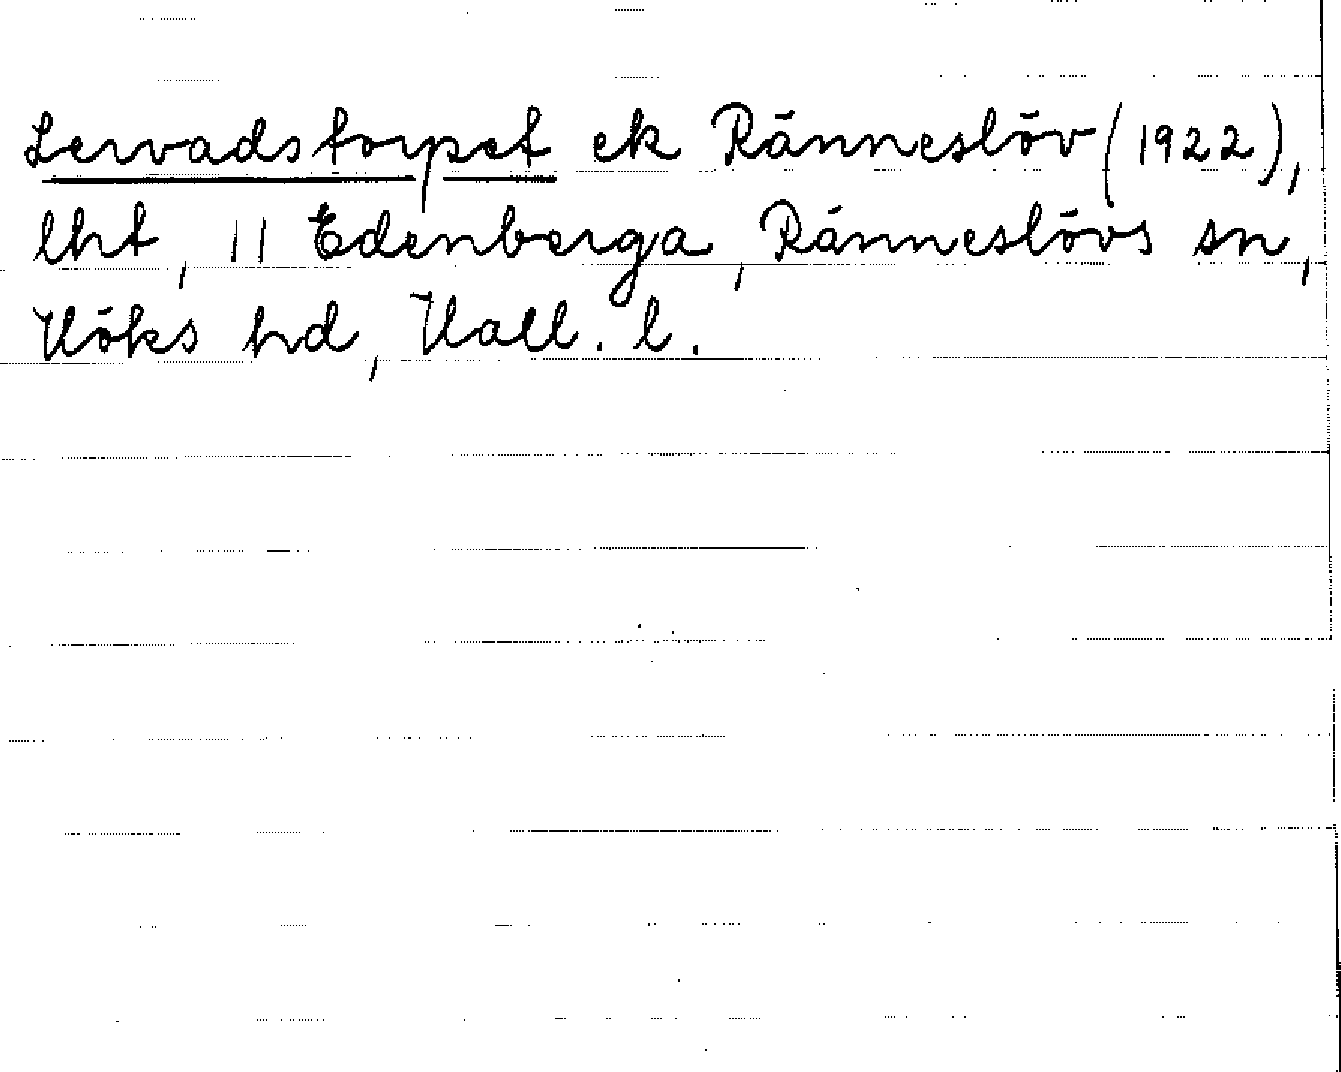 Lervadstorpet ek Ränneslöv (1922),
lht, 11 Edenberga, Ränneslövs sn,
Höks hd, Hall. l.